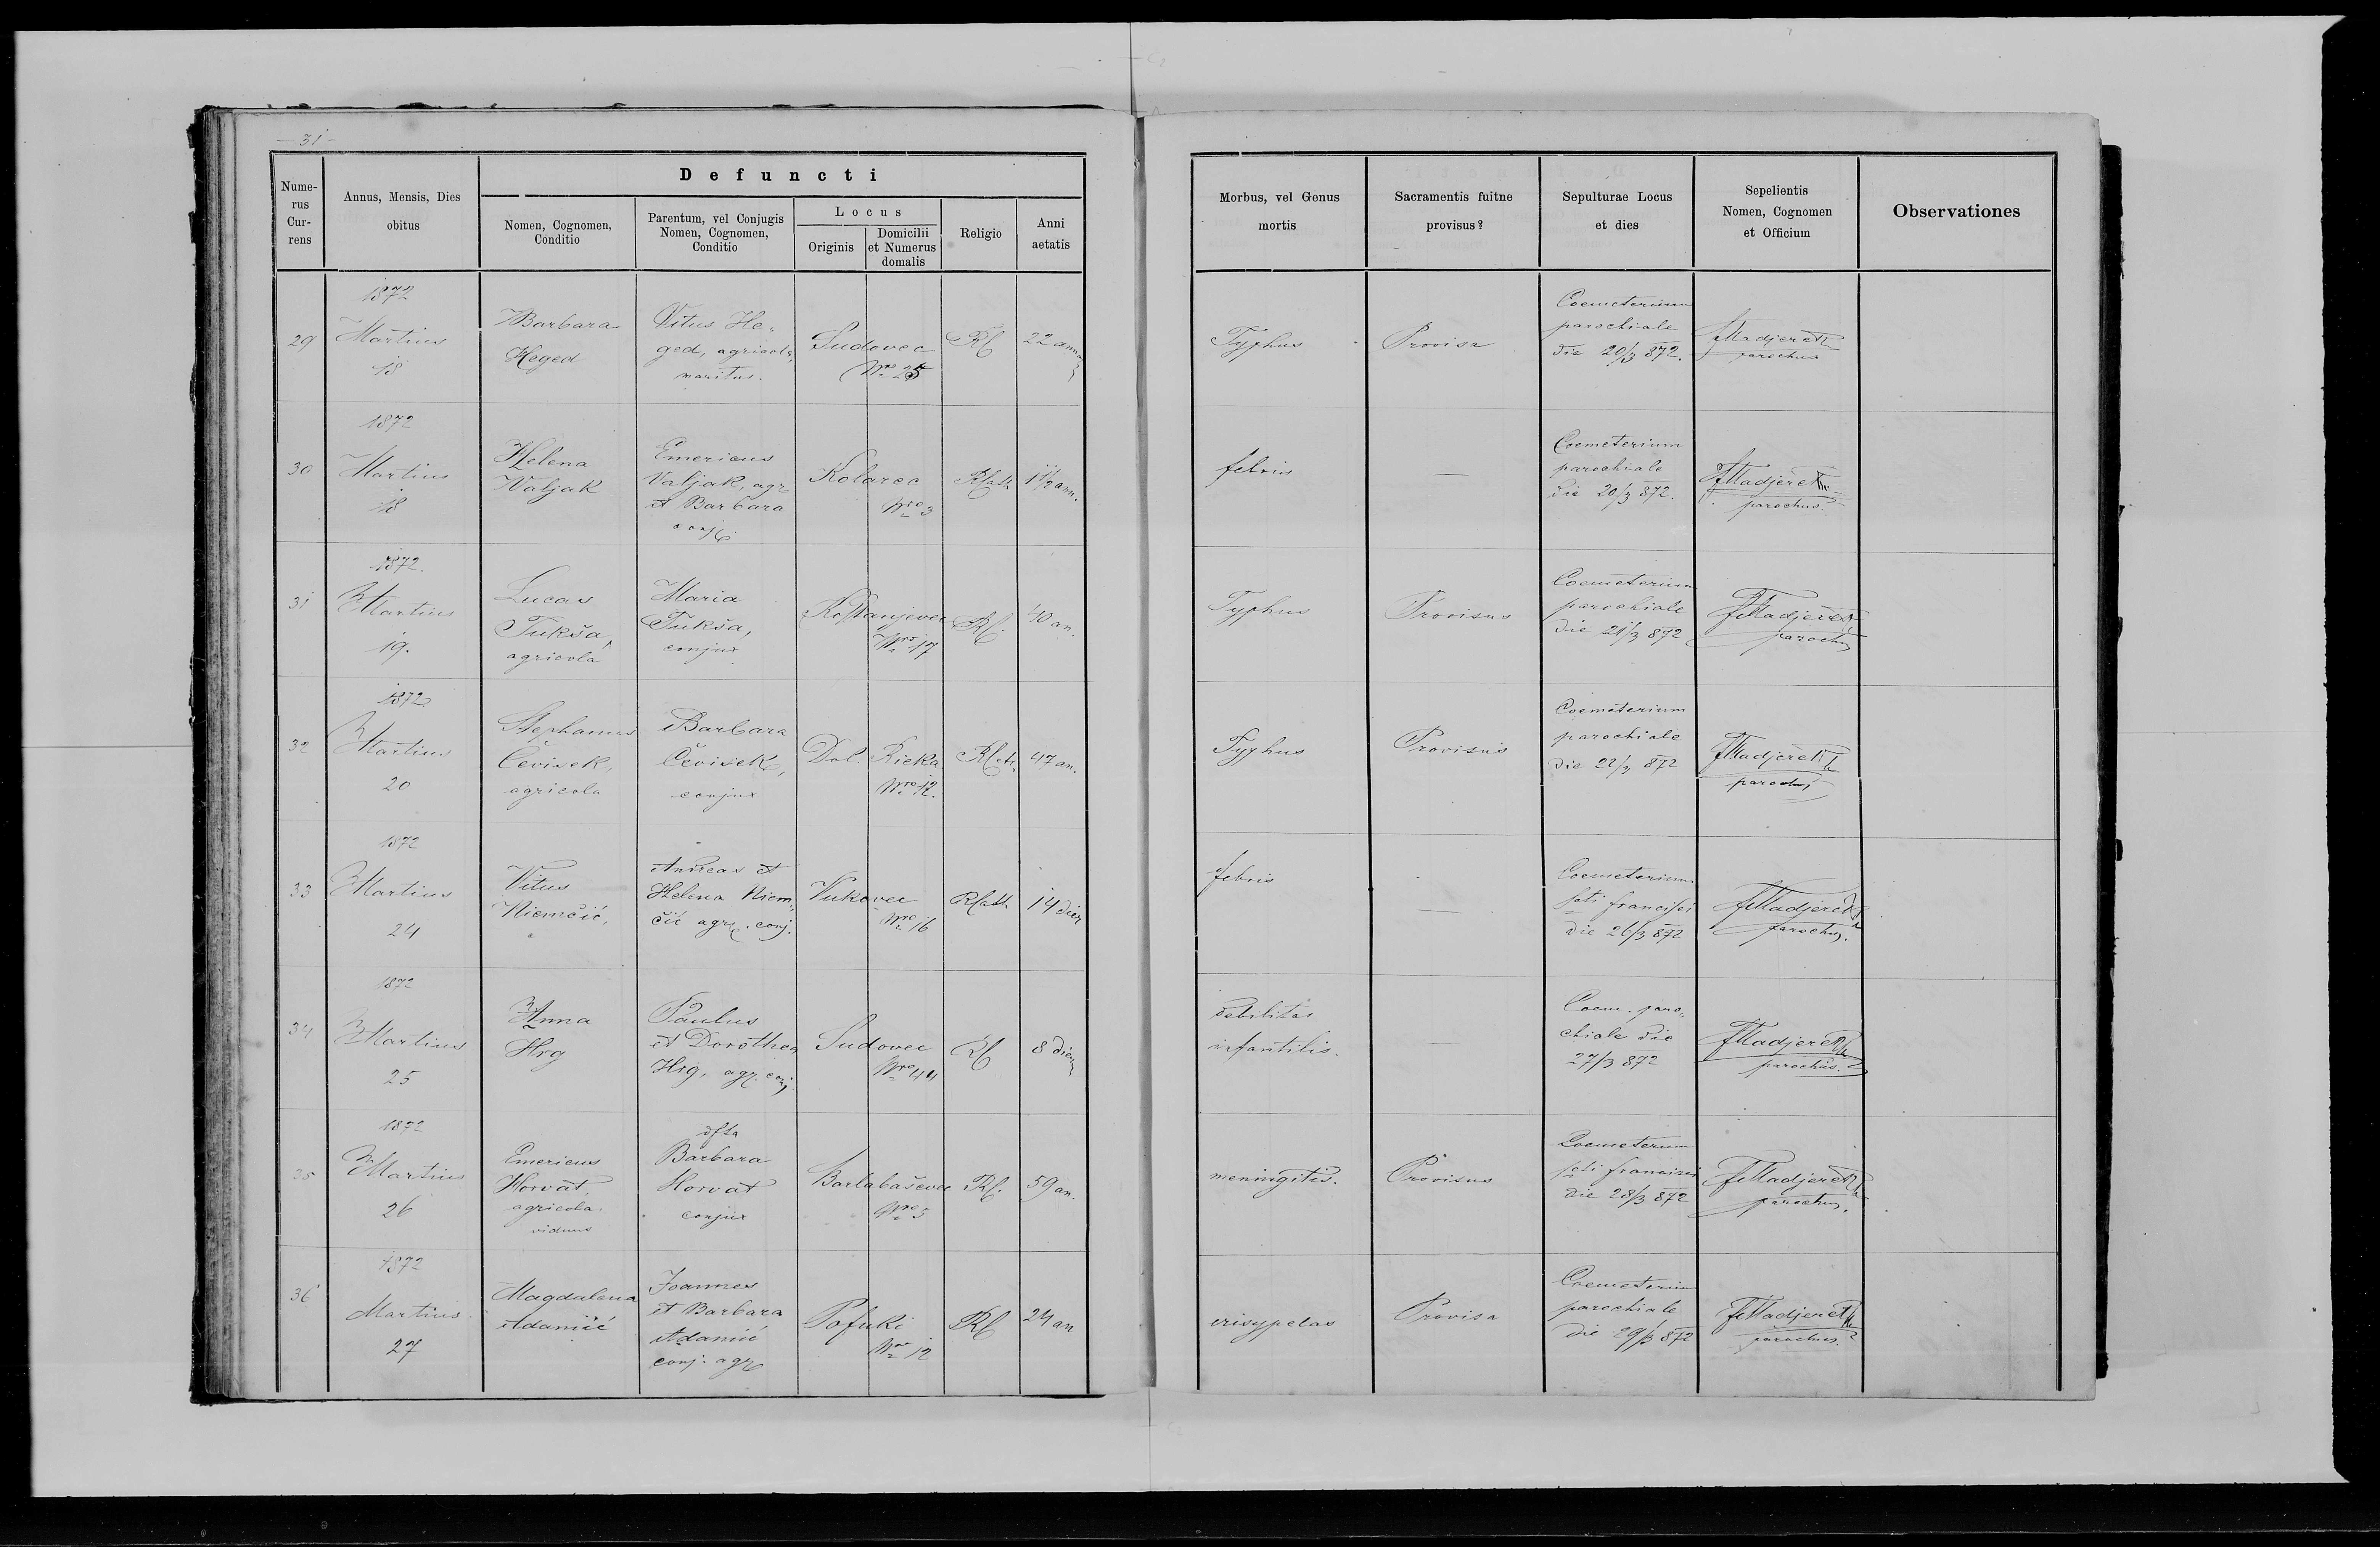 31
Defuncti
Nume-
rus
Cur-
rens
Annus, Mensis, Dies
obitus
Nomen, Cognomen,
Conditio
Parentum, vel Conjugis
Nomen, Cognomen,
Conditio
Locus
Originis
Domicilii
et Numerus
domalis
Religio
Anni
aetatis
Morbus, vel Genus
mortis
Sacramentis fuitne
provisus?
Sepulturae Locus
et dies
Sepelientis
Nomen, Cognomen
et Officium
Observationes
29
1872
Martius
18
Barbara
Heged
Vitus He-
ged, agricola,
maritus.
Sudovec
Nro 25
RC
22 annor
Typhus
Provisa
Coemeterium
parochiale
die 20/3 872.
FMadjerek
parochus
30
1872
Martius
18
Helena
Valjak
Emericus
Valjak, agr
et Barbara
conj
Kolarec
Nro 3
RCath
1 1/2 ann.
febris
—
Coemeterium
parochiale
die 20/3 872.
FMadjerek
parochus.
31
1872.
Martius
19.
Lucas
Tukša,
agricola
Maria
Tukša,
conjux
Kostanjevec
Nro 17
RC.
40 an.
Typhus
Provisus
Coemeterium
parochiale
die 21/3 872
FMadjerek
parochus
32
1872
Martius
20
Stephanus
Čevisek,
agricola
Barbara
Čevisek,
conjux
Dol. Rieka
Nro 12.
RCth.
47 an.
Typhus
Provisus
Coemeterium
parochiale
die 22/3 872
FMadjerek
parochus
33
1872
Martius
24
Vitus
Niemčić,
Andreas et
Helena Niem-
čić agr. conj.
Vukovec
Nro 16
RCath
14 dier
febris
—
Coemeterium
Scti francisci
die 26/3 872
FMadjerek
parochus.
34
1872
Martius
25
Anna
Hrg
Paulus
et Dorothea
Hrg, agr. conj.
Sudovec
Nro 44
RC
8 dierum
debilitas
infantilis.
—
Coem. paro-
chiale die
27/3 872
FMadjerek
parochus.
35
1872
Martius
26
Emericus
Horvat,
agricola.
viduus
dfta
Barbara
Horvat
conjux
Barlabaševec
Nro 5
RC.
59 an.
meningitis.
Provisus
Coemeterum
Scti francisci
die 28/3 872
FMadjerek
parochus.
36
1872
Martius
27
Magdalena
Adamić
Joannes
et Barbara
Adamić
conj. agr
Pofuki
Nro 12
RC
24 an
erisypelas
Provisa
Coemeterium
parochiale
die 29/3 872
FMadjerek
parochus.